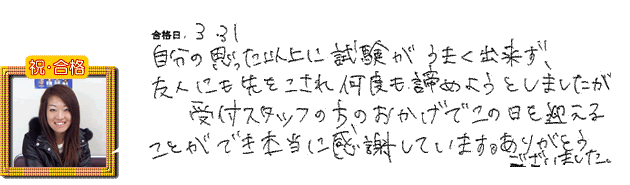 合格日. 3.31
祝・合格
自分の思った以上に試験がうまく出来ず、
友人にも先をこされ何度も諦めようとしましたが
受付スタッフの方のおかげでこの日を迎える
ことができ本当に感謝しています。ありがとう
ございました。